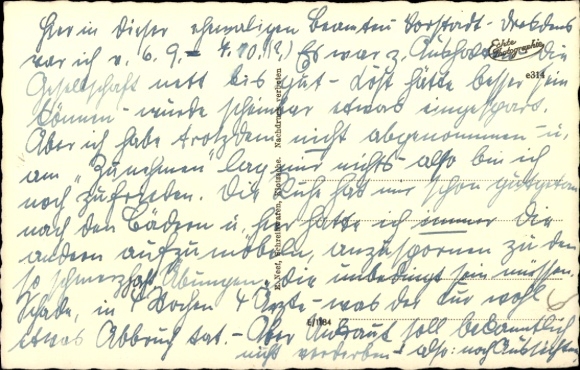 Hier in dieser ehemaligen Beamten Vorstadt - Dresdens
war ich v. 6.9. - 4.10. (?) Es war z. Aushalten. Die
Gesellschaft nett bis gut - Kost hätte besser sein
können - wurde scheinbar etwas eingespart.
Aber ich habe trotzdem nicht abgenommen - u.
am "Zunehmen" lag mir nichts - also bin ich
noch zufrieden. Die Ruhe hat mir schon gutgetan
nach den Bädern u. hier hatte ich immer die
andern aufzumöbeln, anzuspornen zu den
so schmerzhaft Übungen, die unbedingt sein müssen.
Schade, in 4 Wochen 4 Ärzte - was der Kur wohl
etwas Abbruch tat. - Aber Unkraut soll bekanntlich
nicht verderben - also: noch Aussichten
Echte Photographie
e314
E. Neef, Schreibwaren, Klotzsche. Nachdruck verboten